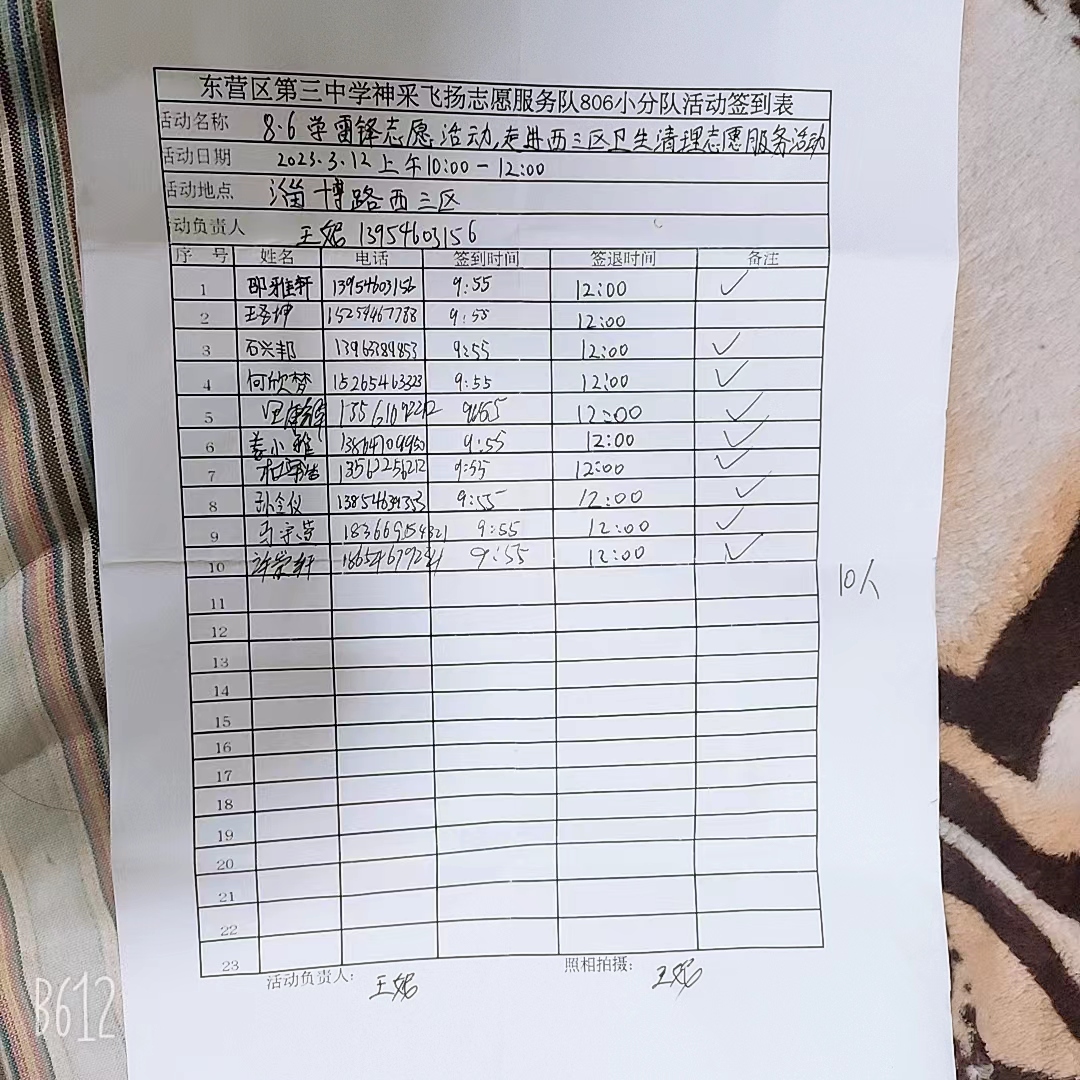 东营区第三中学神采飞扬志愿服务队806小分队活动签到表
活动名称 8.6学雷锋志愿活动,走进西三区卫生清理志愿服务活动
活动日期 2023.3.12上午10:00-12:00
活动地点 淄博路西三区
动负责人 王妮 13954603156
序号 姓名 电话 签到时间 签退时间 备注
1 邵雅轩 13954603156 9:55 12:00 ✓
2 15254467788 9:55 12:00
3 石兴邦 13963389853 9:55 12:00 ✓
4 何欣梦 15265463323 9:55 12:00 ✓
5 12:00 ✓
6 姜小雅 9:55 12:00 ✓
7 13562256212 9:55 12:00 ✓
8 9:55 12:00 ✓
9 9:55 12:00 ✓
10 许荣轩 9:55 12:00 ✓
10人
11
12
13
14
15
16
17
18
19
20
21
22
23
活动负责人: 王妮 照相拍摄: 王妮
B612